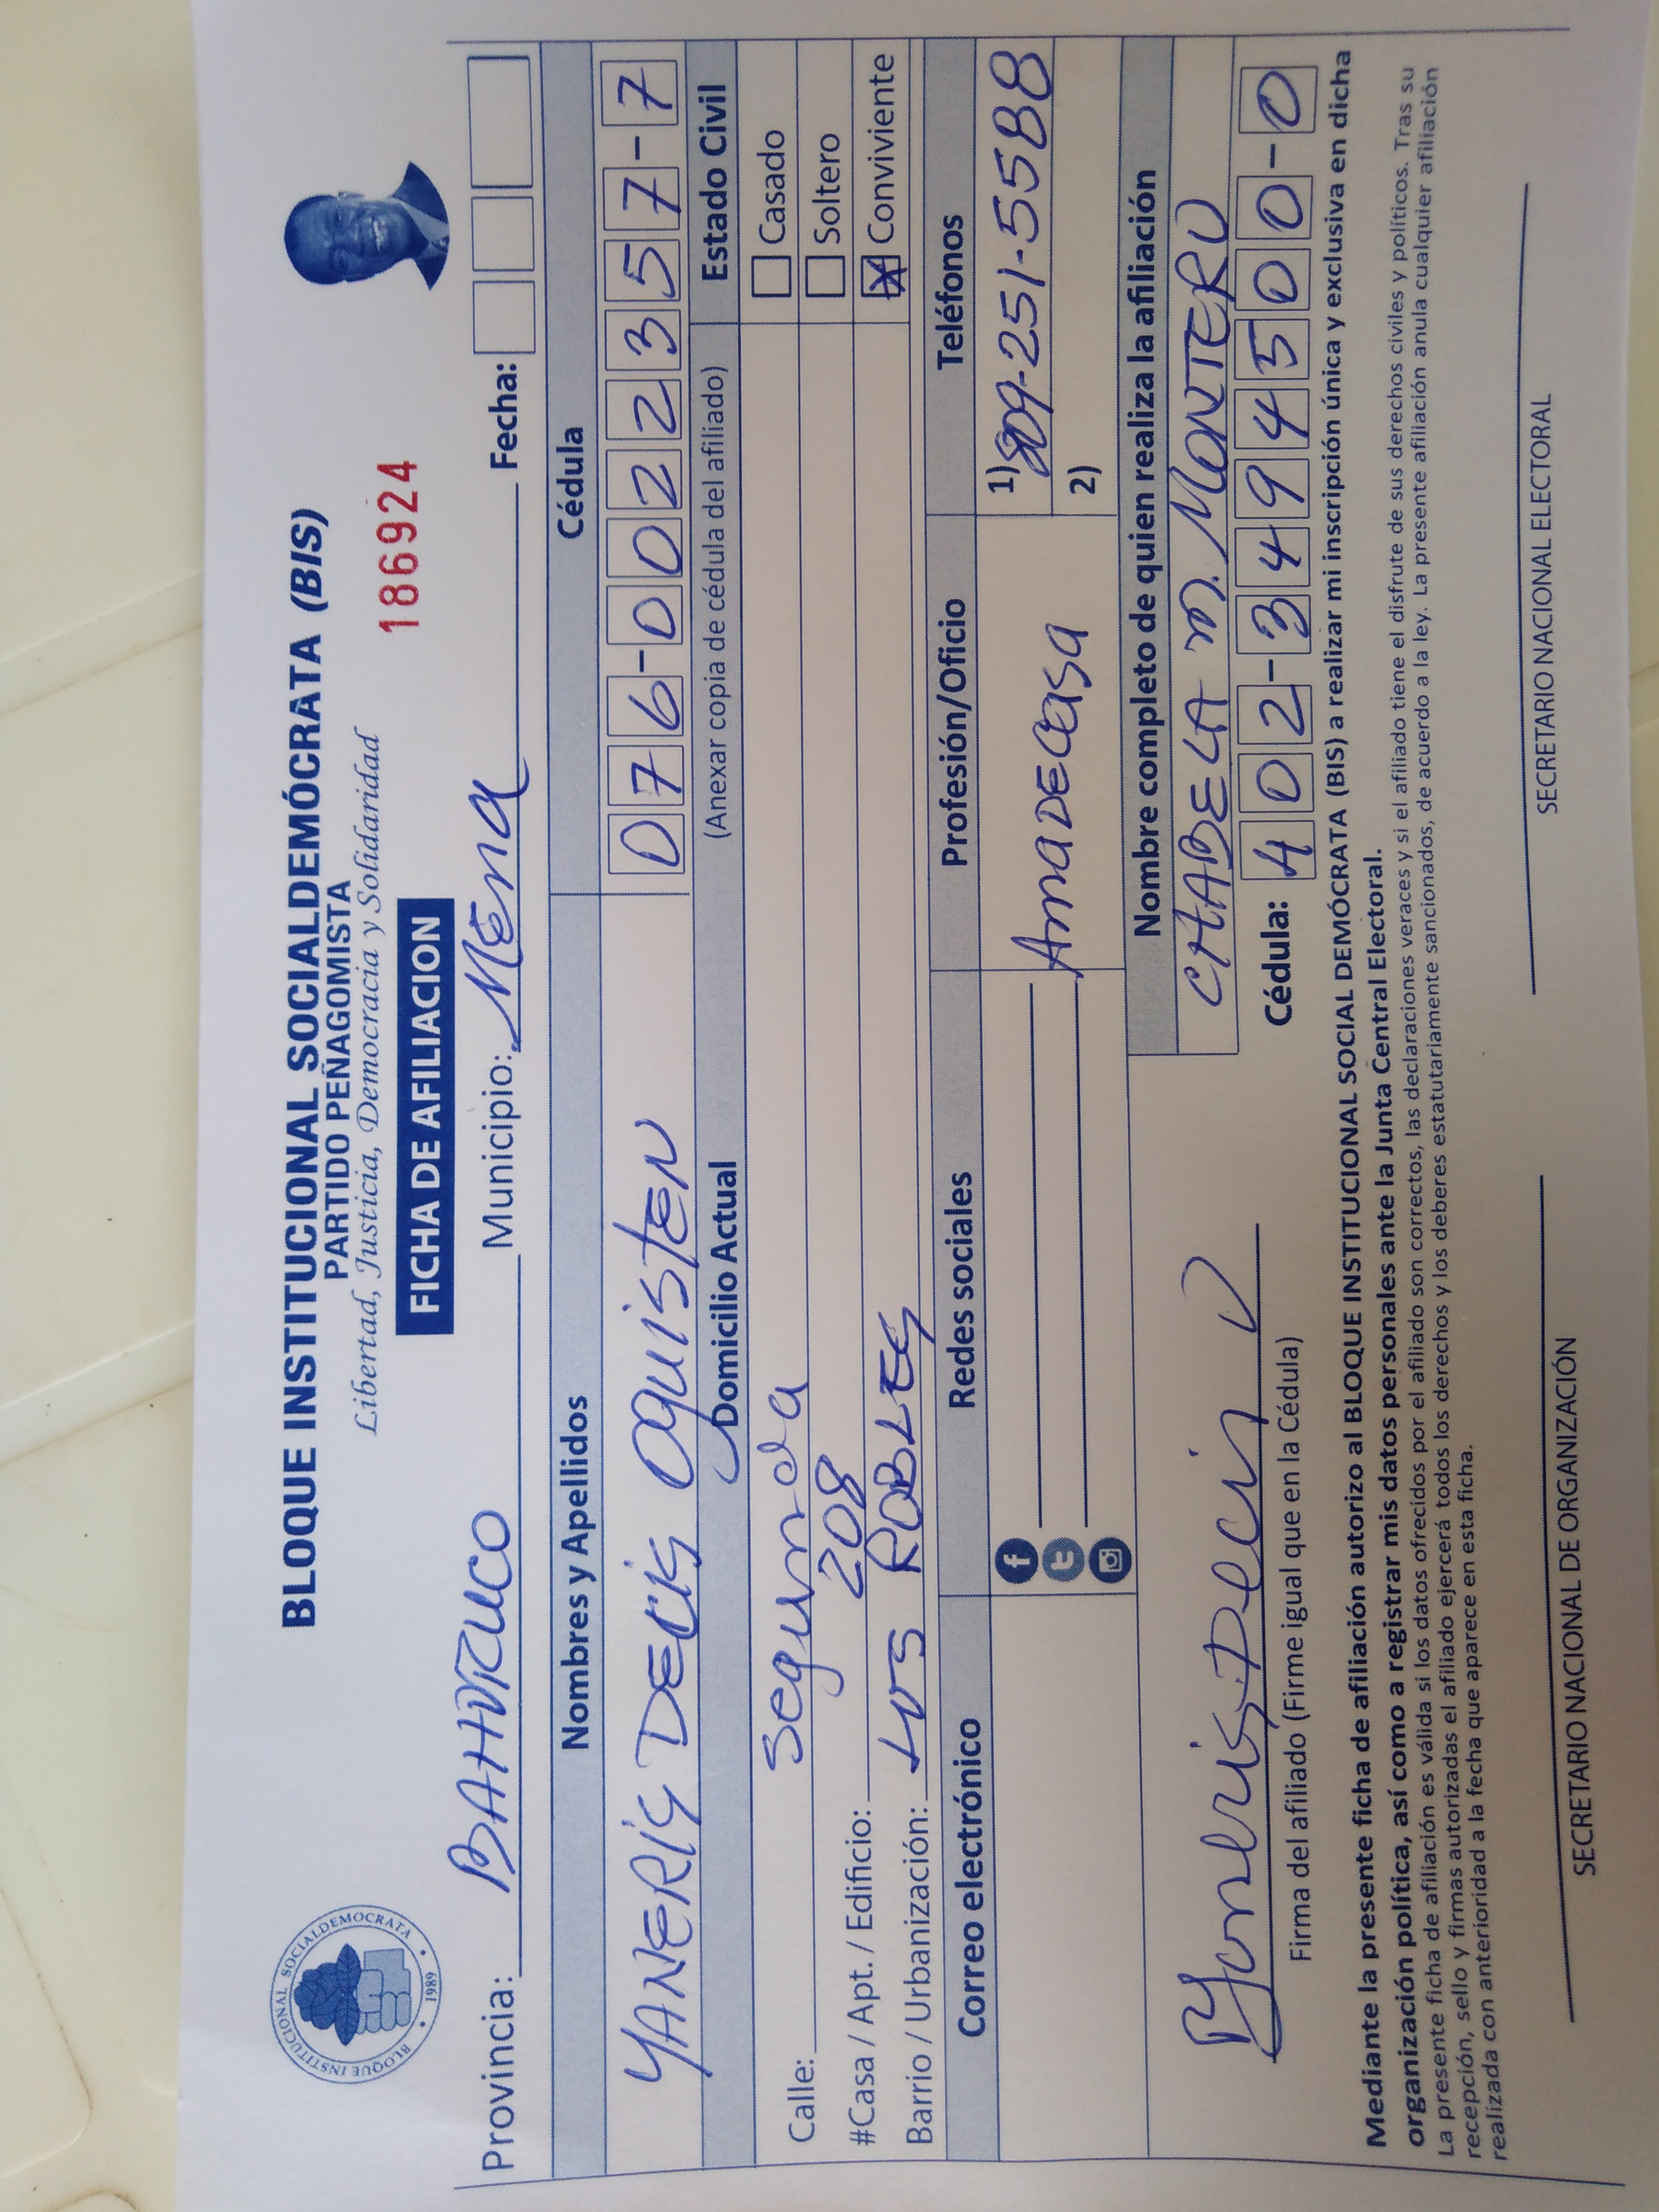 BLOQUE INSTITUCIONAL SOCIALDEMOCRATA • 1989 •
BLOQUE INSTITUCIONAL SOCIALDEMÓCRATA (BIS)
PARTIDO PEÑAGOMISTA
Libertad, Justicia, Democracia y Solidaridad
186924
FICHA DE AFILIACION
Provincia: BAHORUCO Municipio: Mena Fecha:
Nombres y Apellidos Cédula
YANERIS DECIS OQUISTEN 076-0022357-7
Domicilio Actual (Anexar copia de cédula del afiliado) Estado Civil
Calle: Segunda Casado
#Casa / Apt. / Edificio: 208 Soltero
Barrio / Urbanización: LOS ROBLES X Conviviente
Correo electrónico Redes sociales Profesión/Oficio Teléfonos
AmaDECasa 1) 809-251-5588
2)
Nombre completo de quien realiza la afiliación
CHABELA M. MONTERO
Yaneris Decis O
Cédula: 402-3494500-0
Firma del afiliado (Firme igual que en la Cédula)
Mediante la presente ficha de afiliación autorizo al BLOQUE INSTITUCIONAL SOCIAL DEMÓCRATA (BIS) a realizar mi inscripción única y exclusiva en dicha
organización política, así como a registrar mis datos personales ante la Junta Central Electoral.
La presente ficha de afiliación es válida si los datos ofrecidos por el afiliado son correctos, las declaraciones veraces y si el afiliado tiene el disfrute de sus derechos civiles y políticos. Tras su
recepción, sello y firmas autorizadas el afiliado ejercerá todos los derechos y los deberes estatutariamente sancionados, de acuerdo a la ley. La presente afiliación anula cualquier afiliación
realizada con anterioridad a la fecha que aparece en esta ficha.
SECRETARIO NACIONAL DE ORGANIZACIÓN SECRETARIO NACIONAL ELECTORAL